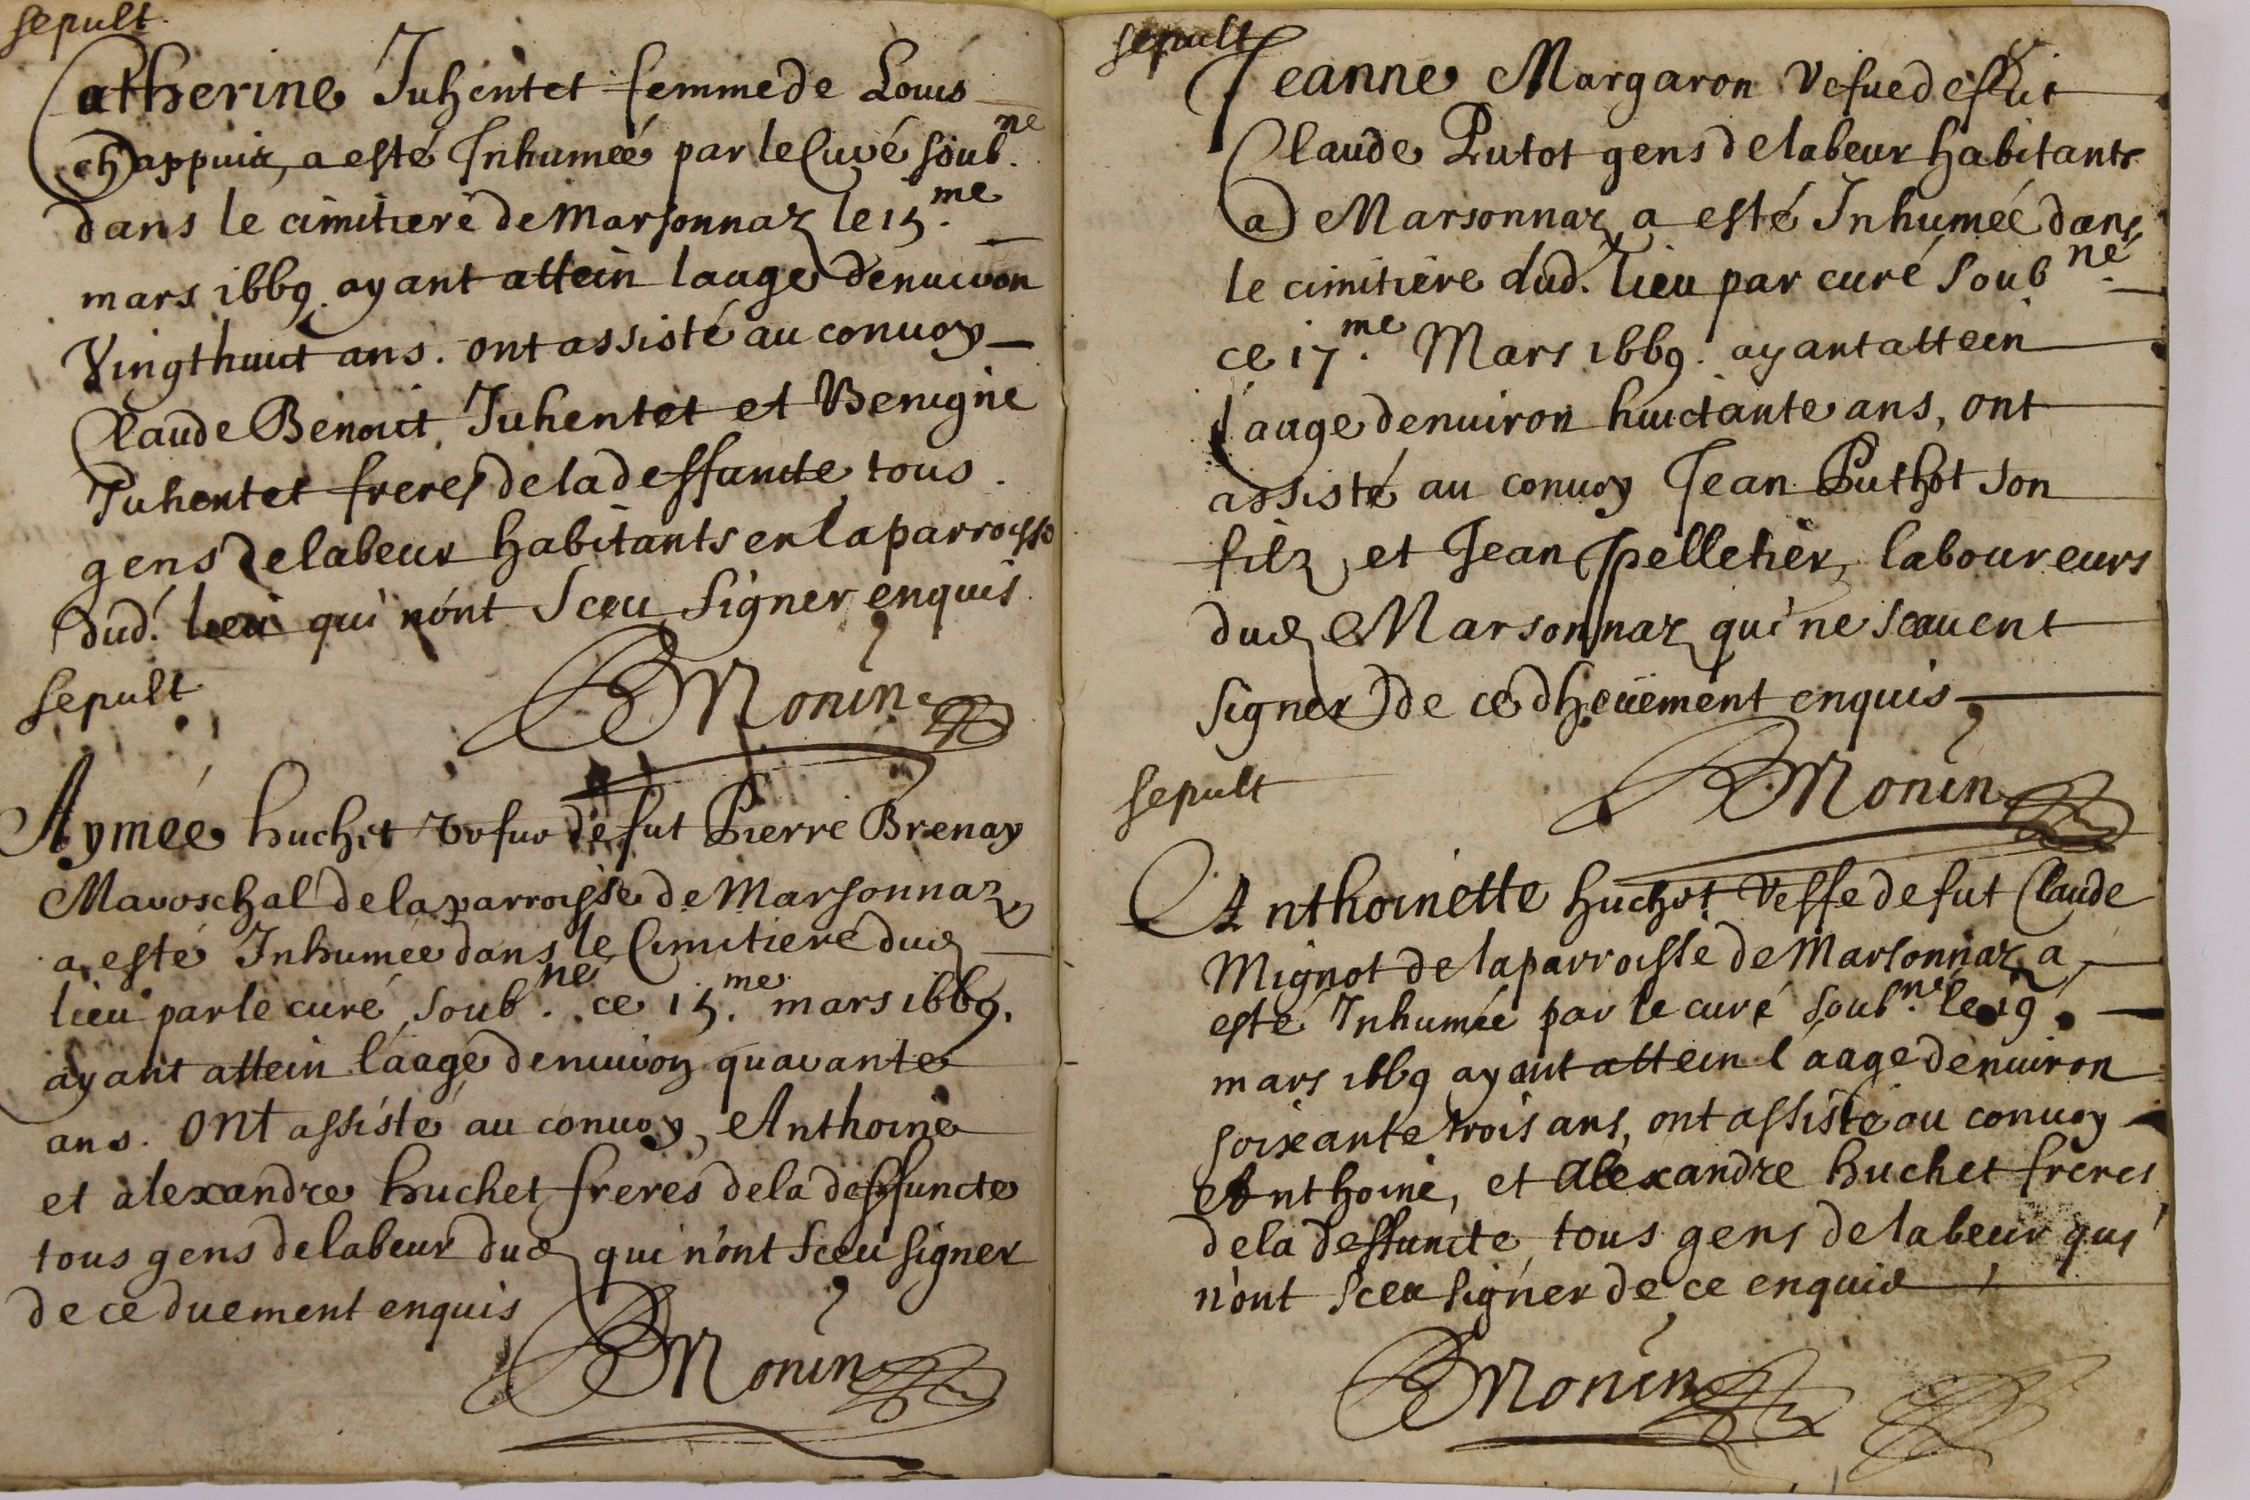 sepult.
Catherine Juhentet femme de Louis
Chappuix, a esté Inhumeé par le Curé soub.ne
dans le cimitiere de marsonnaz le 15.me
mars 1669. ayant attein laage denuiron
Vingthuict ans. ont assisté au conuoy
Claude Benoict Juhentet et Benigne
Juhentet freres de la deffuncte tous
gens de labeur habitants en la parroisse
dud. lieu qui n'ont sceu signer enquis
Monin
sepult
Aymeé huchet vefue de fut Pierre Brenay
Mareschal de la parroisse de Marsonnaz
a esté Inhumée dans le Cimitiere dud
lieu par le curé soub.né ce 15.me mars 1669.
ayant attein l'aage denuiron quarante
ans. ont assisté au conuoy, Anthoine
et alexandre huchet freres de la deffuncte
tous gens de labeur dud qui n'ont sceu signer
de ce duement enquis
Monin
sepult
Jeanne Margaron Vefue de fut
Claude Putot gens de labeur habitants
a Marsonnaz a esté Inhumeé dans
le cimitiere dud. lieu par curé soub.né
ce 17.me Mars 1669. ayant attein
l'aage denuiron huictante ans, ont
assisté au conuoy Jean Puthot son
filz et Jean pelletier, laboureurs
dud Marsonnaz qui ne scauent
signer de ce dheüement enquis
Monin
sepult
Anthoinette huchet Veffe de fut Claude
Mignot de la parroisse de Marsonnaz a
esté Inhumée par le curé soub.né le 19
mars 1669 ayant attein l'aage denuiron
soixante trois ans, ont assisté au conuoy
Anthoine, et Alexandre huchet freres
de la deffuncte tous gens de labeur qui
n'ont sceu signer de ce enquis
Monin